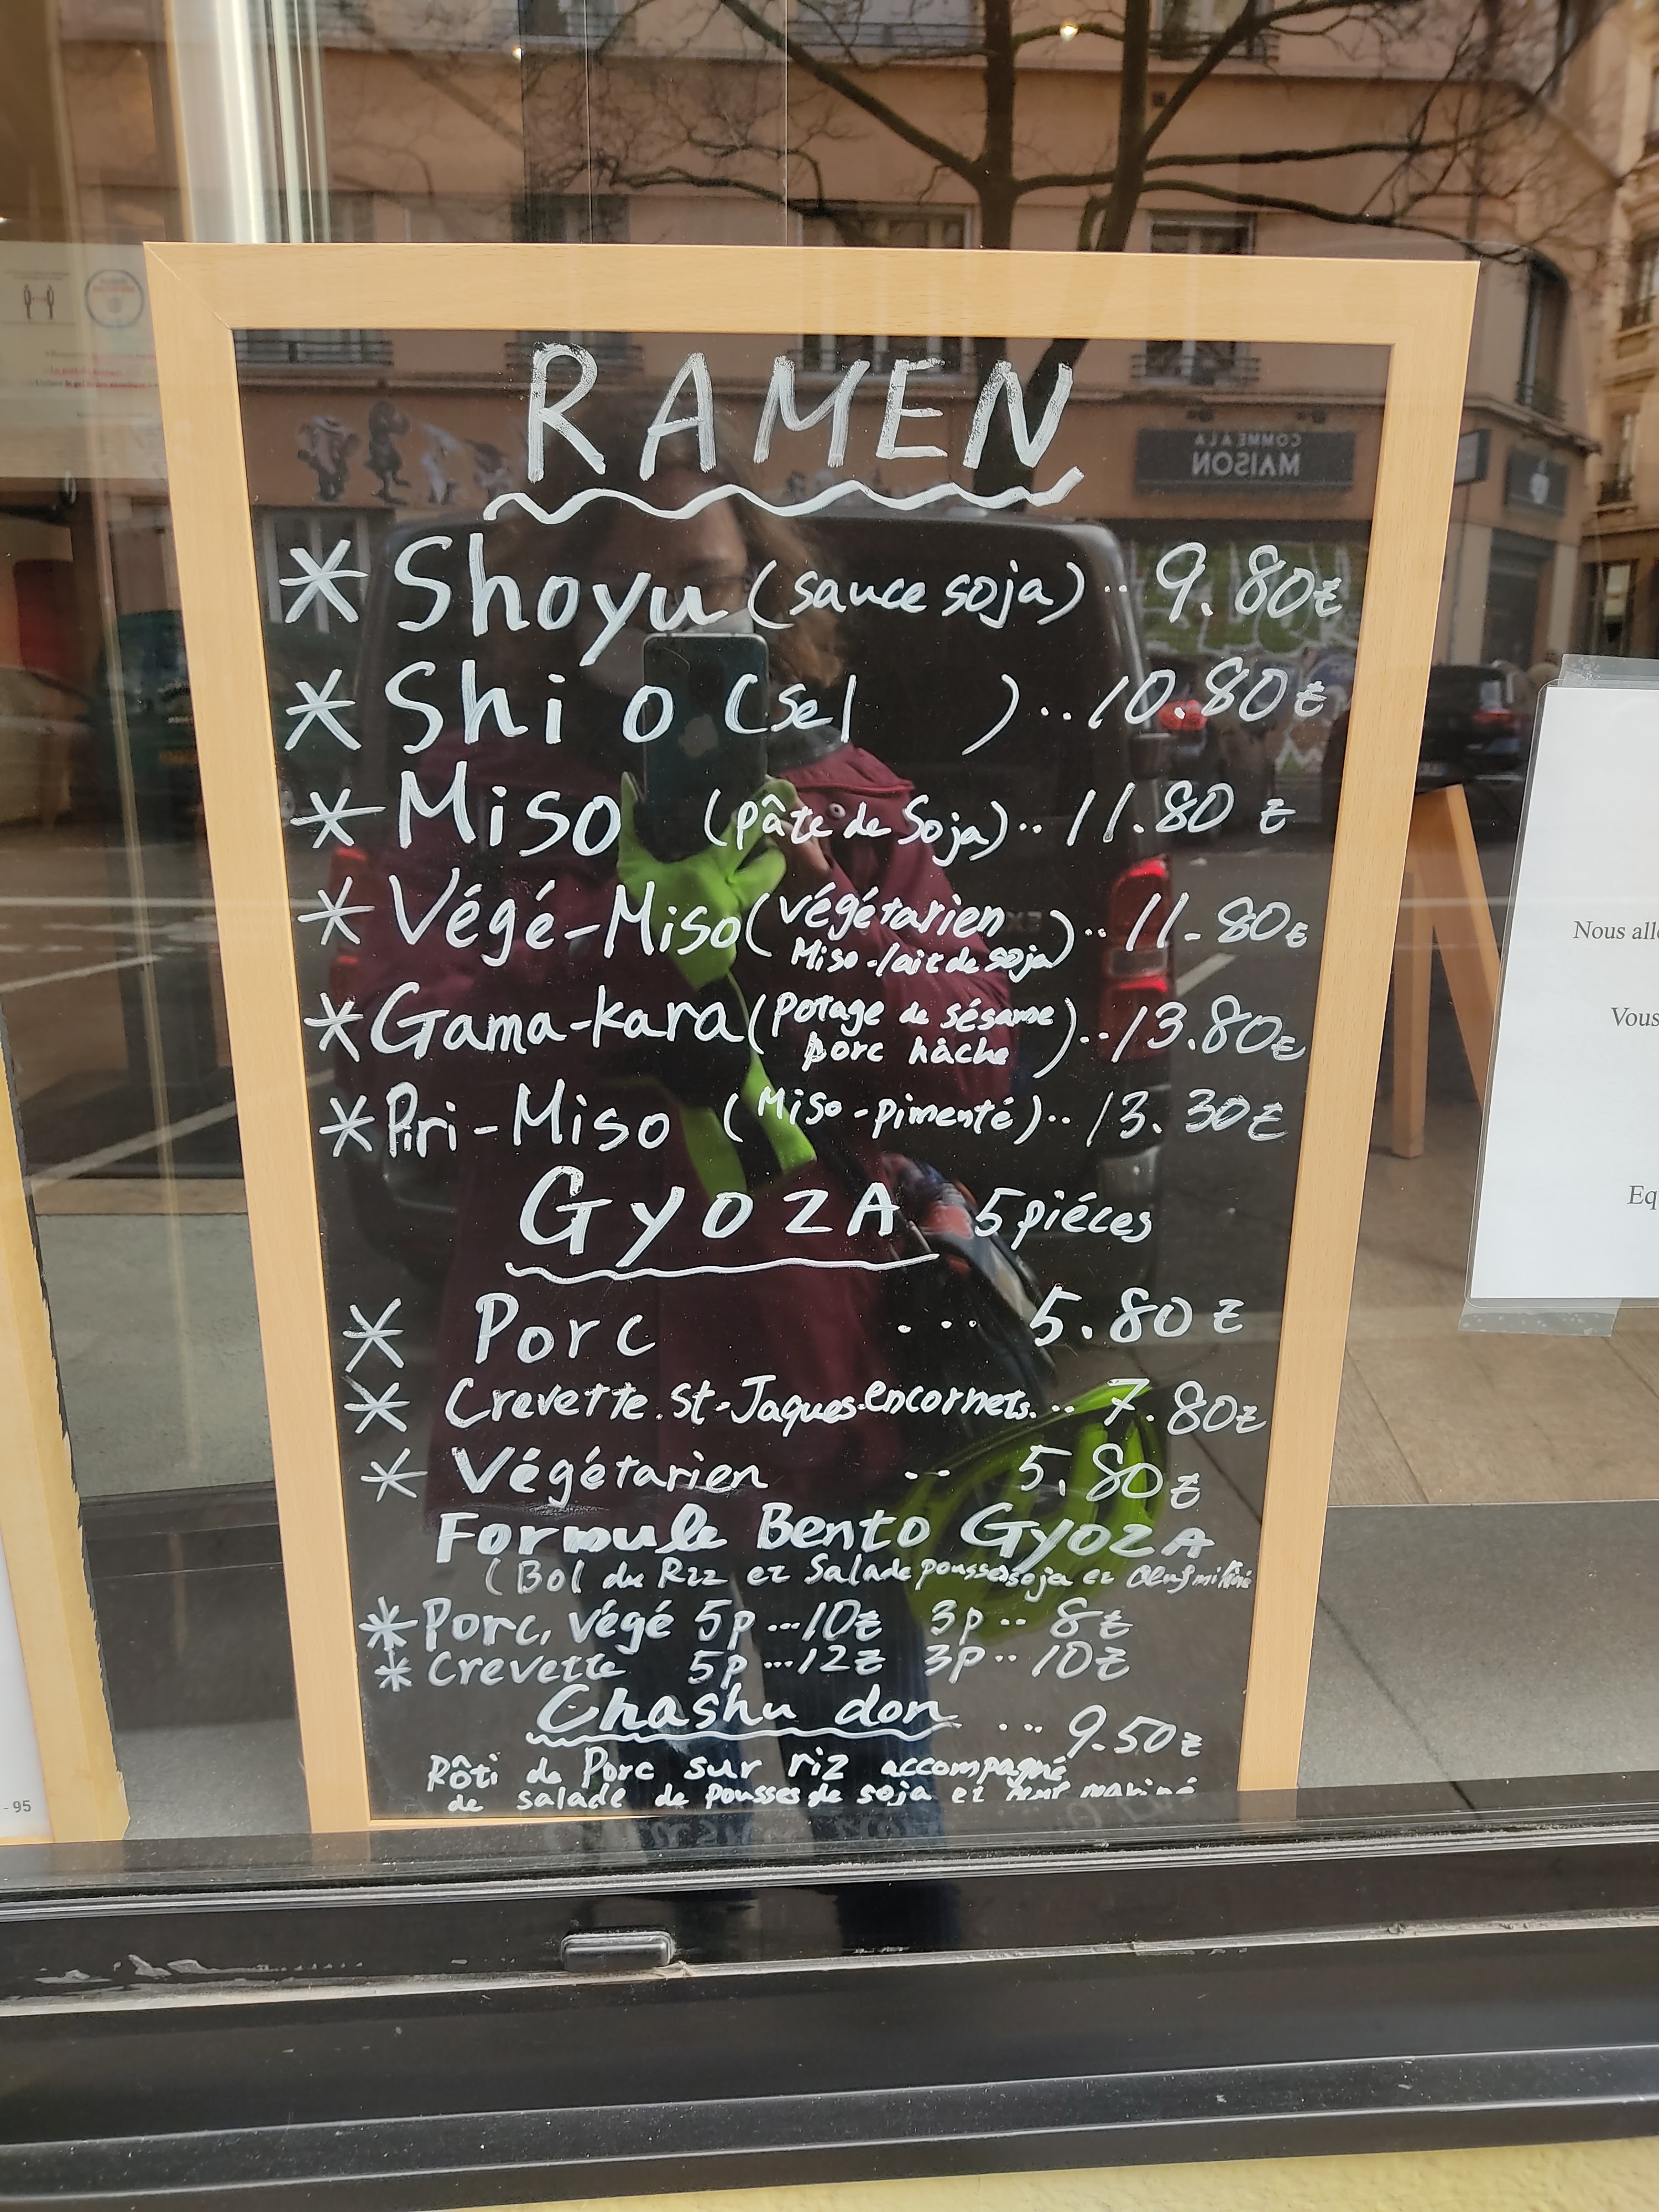 RAMEN
* Shoyu (sauce soja) .. 9.80€
* Shio (Sel ) .. 10.80€
* Miso (pâte de Soja) .. 11.80€
* Végé-Miso (végétarien Miso-lait de soja) .. 11.80€
* Gama-kara (Potage de sésame porc hâche) .. 13.80€
* Piri-Miso (Miso-pimenté) .. 13.30€
GyozA 5 piéces
* Porc ... 5.80€
* Crevette.St-Jaques.encornets... 7.80€
* Végétarien .. 5.80€
Formule Bento GyozA
(Bol du Riz et Salade pousses soja et Oeuf
* Porc, végé 5p ... 10€ 3p .. 8€
* Crevette 5p ... 12€ 3p .. 10€
Chashu don ... 9.50€
Rôti de Porc sur riz accompagné
de salade de pousses de soja et
COMME A LA
MAISON
Nous
Vous
- 95